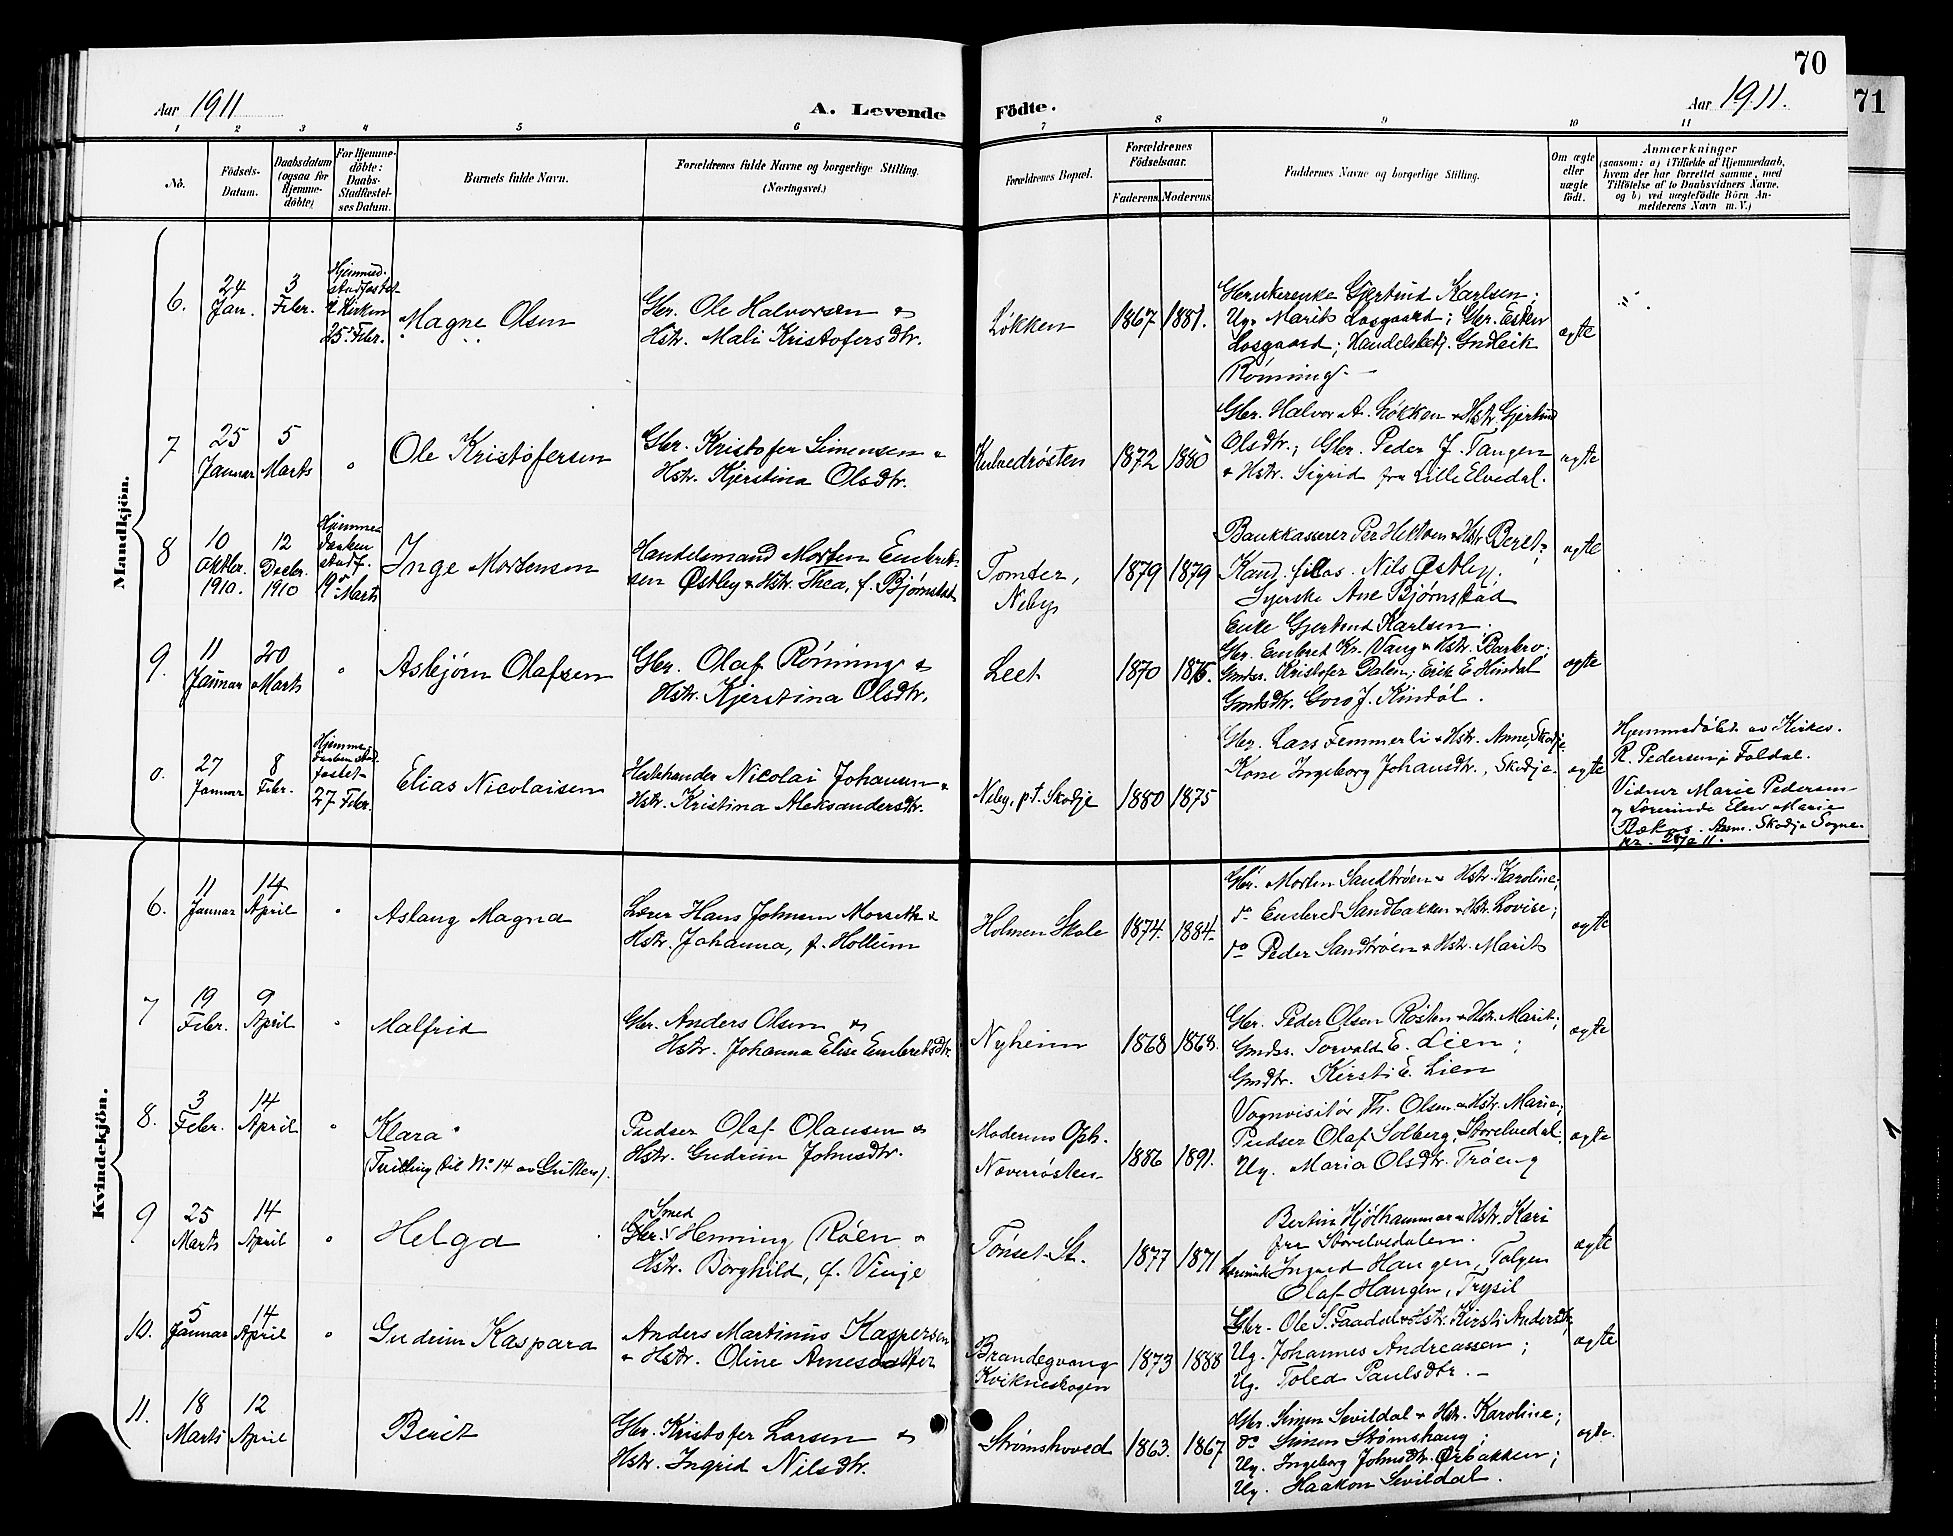 70
71
Aar 1911
A. Levende
Födte.
Aar 1911.
1 2 3 4 5 6 7 8 9 10 11
No.
Födsels-
Datum.
Daabsdatum
(ogsaa for
Hjemme-
döbte)
For Hjemme-
döbte:
Daabs-
Stadfæstel-
ses Datum.
Barnets fulde Navn.
Forældrenes fulde Navne og borgerlige Stilling.
(Næringsvei.)
Forældrenes Bopæl.
Forældrenes
Födselsaar.
Faderens. Moderens.
Faddernes Navne og borgerlige Stilling.
Om ægte
eller
uægte
födt.
Anmærkninger
(saasom: a) i Tilfælde af Hjemmedaab,
hvem der har forrettet samme, med
Tilföielse af to Daabsvidners Navne,
og b) ved uægtefödte Börn An-
melderens Navn m. V.)
Mandkjön.
6.
24
Jan.
3
Febr.
Hjemmed.
stadfæstet
i Kirken
25 Febr.
Magne Olsen
Gbr. Ole Halvorsen &
Hstr. Mali Kristofersdtr.
Løkken
1867
1881.
Gjertrud Karlsen;
Ug. Marit Losgaard; Gbr. Esten
Losgaard; Handelsbetj.
Rønning.
ægte
7
25
Januar
5
Marts
Ole Kristofersen
Gbr. Kristofer Simensen &
Hstr. Kjerstina Olsdtr.
1872
1880
Gbr. Halvor A. Løkken & Hstr. Gjertrud
Olsdtr.; Gbr. Peder J. Tangen
& Hstr. Sigrid fra Lille Elvedal.
ægte
8
10
Oktbr.
1910.
12
Decbr.
1910
Hjemme-
daaben
stadf.
19 Marts
Inge Mortensen
Handelsmand Morten Embret-
sen Østby & Hstr. Thea, f. Bjørnstad
Tomter,
Neby
1879
1879
Bankkasserer Per & Hstr. Beret;
Kand. filos. Nils Østby;
Syerske Ane Bjørnstad
Enke Gjertrud Karlsen.
ægte
9.
11
Januar
20
Marts
Asbjørn Olafsen
Gbr. Olaf Rønning &
Hstr. Kjerstina Olsdtr.
Leet
1870
1875.
Gbr. Embret Kr. Vang & Hstr. Barbro;
Gmdss. Kristofer Dalen; Erik E. Hindal
Gmdsdtr. Goro J.
ægte
0.
27
Januar
8
Febr.
Hjemme-
daaben stad-
fæstet
27 Febr.
Elias Nicolaisen
Nicolai Johansen &
Hstr. Kristina Aleksandersdtr.
Neby, p.t. Skodje
1880
1875
Gbr. Lars Femmerli & Hstr. Anne, Skodje
Kone Ingeborg Johansdtr., Skodje.
ægte
Hjemmedøbt av Kirkes.
R. Pedersen i Foldal.
Vidner Marie Pedersen
og Lærerinde Elen Marie
Bækos. Anm. Skodje Sogne-
Kvindekjön.
6.
11
Januar
14
April
Aslaug Magna
Lærer Hans Johnsen Morseth &
Hstr. Johanna, f. Holtum
Holmen Skole
1874.
1884.
Gbr. Morten Sandtrøen & Hstr. Karoline;
do Embret Sandbakken & Hstr. Lovise;
do Peder Sandtrøen & Hstr. Marit
ægte
7
19
Febr.
9
April
Malfrid
Gbr. Anders Olsen &
Hstr. Johanna Elise Embretsdtr.
Nyheim
1868
1868.
Gbr. Peder Olsen Røsten & Hstr. Marit;
Gmdss. Torvald E. Lien;
Gmdtr. Kirsti E. Lien
ægte
8.
3
Febr.
14
April
Klara
(Tvilling til No 14 av Gutter).
Pudser Olaf Olausen &
Hstr. Gudrun Johnsdtr.
Moderens Oph.
Næverrøsten
1886
1891.
Vognvisitør Th. Olsen & Hstr. Marie;
Pudser Olaf Solberg, Storelvedal;
Ug. Maria Olsdtr. Trøeng
ægte
9
25
Marts
14
April
Helga
Smed
Gbr. Henning Røen &
Hstr. Borghild, f. Vinje
Tønset St.
1877
1871
Bertin Kjølhammar & Hstr. Kari
fra Storelvedalen.
Lærerinde Ingrid Haugen, Tolgen
Olaf Haugen, Trysil
ægte
10.
5
Januar
14
April
Gudrun Kaspara
Anders Martinus Kaspersen
& Hstr. Oline Arnesdatter
Brandegvang
Kvikneskogen
1873
1888
Gbr. Ole S. Faadal & Hstr. Kirsti Andersdtr;
Ug. Johannes Andreassen;
Ug. Toled Paulsdtr.
ægte
11.
18
Marts
12
April
Berit
Gbr. Kristofer Larsen &
Hstr. Ingrid Nilsdtr.
Strømshoved
1863.
1867
Gbr. Simen Sevildal & Hstr. Karoline;
do Simen Strømshaug;
Ug. Ingeborg Johnsdtr. Ørbakken;
Ug. Haakon Sevildal.
ægte